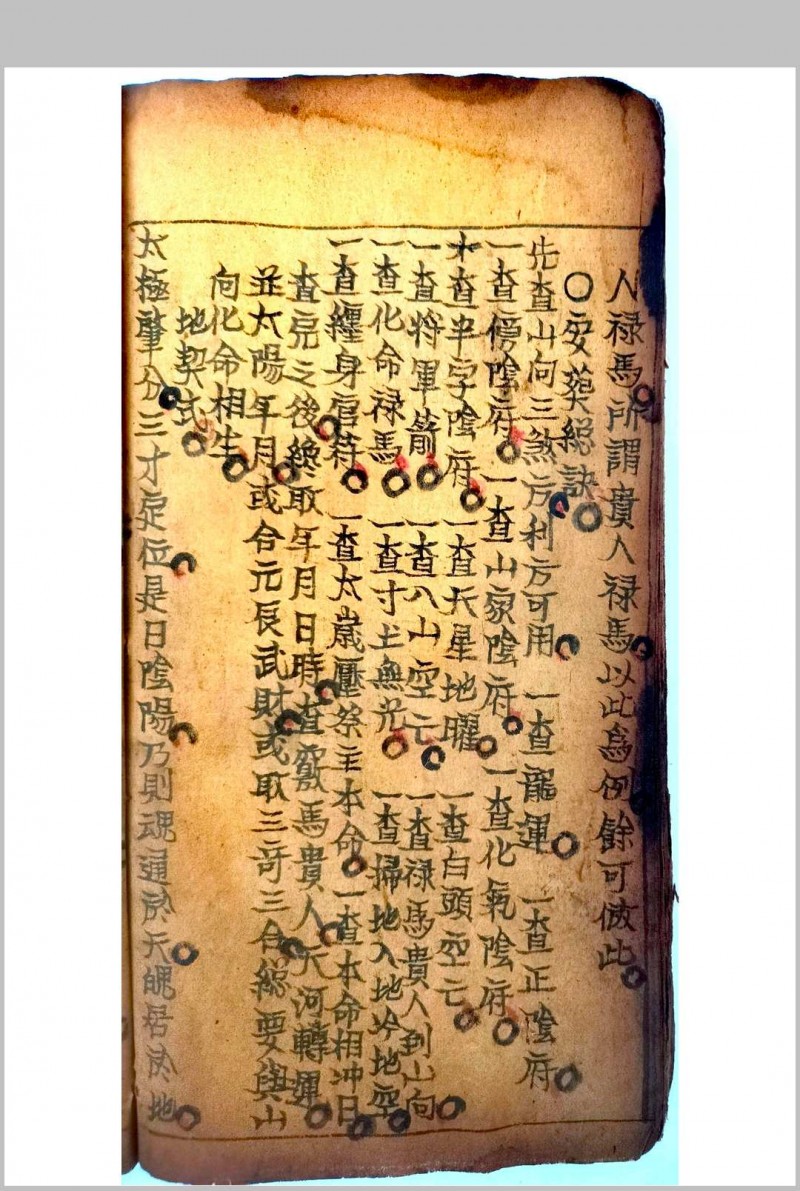 人禄馬所謂貴人禄馬以此為例餘可倣此
○安葬総訣
先查山向三煞方利方可用 一查龍運 一查正陰府
一查傍陰府 一查山家陰府 一查化氣陰府
一查半字陰府 一查天星地曜 一查白頭空亡
一查将軍箭 一查八山空亡 一查禄馬貴人到山向
一查化命禄馬 一查寸土無光 一查掃地入地吟地空
一查纏身官符 一查太歲壓祭主本命 一查本命相冲日
查完之後纔取年月日時查竅馬貴人天河轉運
並太陽年月或合元辰武財或取三竒三合総要與山
向化命相生
地契式
太極肇分三才定位是日陰陽乃則魂通於天魄居於地